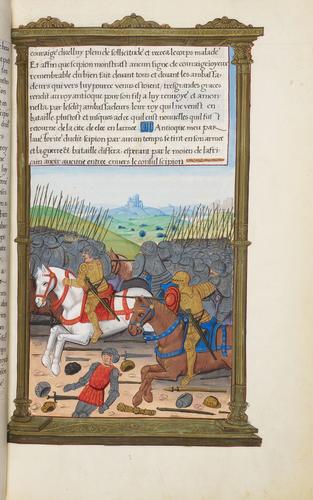 couraige duelluy plein de sollicitude et recrea le corps malade
Et affin que scipion monstrast aucun signe de couraige ioyeux
remenbrable du bien fait deuant tous et deuant les ambassa
deurs qui vers luy pource venus estoient, tresgrandes graces
rendit au roy antioque pour son filz a luy renuoye et amon
nesta par lesditz ambassadeurs leur roy qui ne venist en
bataille plustost et iusques ad ce quil eust nouuelles quil fust
retourne de la cite de elee en larmee Antioque meu par
lauctorite dudit scipion par aucun temps se tint en son armee
et la guerre et bataille differa esperant par le moien de laffri
cain auoir aucune entree enuers le consul scipion